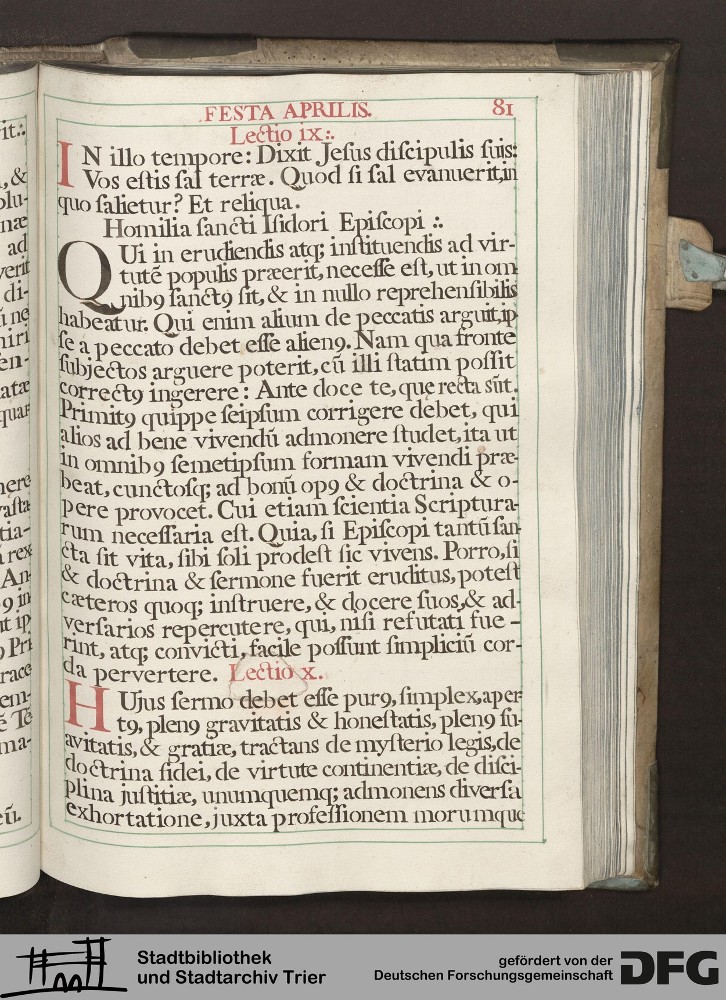 FESTA APRILIS. 81
Lectio ix:.
IN illo tempore: Dixit Jeſus diſcipulis ſuis:
Vos eſtis ſal terræ. Quod ſi ſal evanuerit, in
quo ſalietur? Et reliqua.
Homilia ſancti Iſidori Epiſcopi :.
QUi in erudiendis atq; inſtituendis ad vir-
tutē populis præerit, neceſſe eſt, ut in om
nibꝯ ſanctꝯ ſit, & in nullo reprehenſibilis
habeatur. Qui enim alium de peccatis arguit, ip
ſe a peccato debet eſſe alienꝯ. Nam qua fronte
ſubjectos arguere poterit, cū illi ſtatim poſſit
correctꝯ ingerere: Ante doce te, quę recta sūt.
Primitꝯ quippe ſeipſum corrigere debet, qui
alios ad bene vivendū admonere ſtudet, ita ut
in omnibꝯ ſemetipſum formam vivendi præ-
beat, cunctoſq; ad bonū opꝯ & doctrina & o-
pere provocet. Cui etiam ſcientia Scriptura-
rum neceſſaria eſt. Quia, ſi Epiſcopi tantū ſan-
cta ſit vita, ſibi ſoli prodeſt ſic vivens. Porro, ſi
& doctrina & ſermone fuerit eruditus, poteſt
cæteros quoq; inſtruere, & docere ſuos, & ad-
verſarios repercutere, qui, niſi refutati fue-
rint, atq; convicti, facile poſſunt ſimpliciū cor-
da pervertere. Lectio x.
HUjus ſermo debet eſſe purꝯ, ſimplex, aper-
tꝯ, plenꝯ gravitatis & honeſtatis, plenꝯ ſu-
avitatis, & gratiæ, tractans de myſterio legis, de
doctrina fidei, de virtute continentiæ, de diſci-
plina juſtitiæ, unumquemq; admonens diverſa
exhortatione, juxta profeſſionem morumque
Stadtbibliothek
und Stadtarchiv Trier
gefördert von der
Deutschen Forschungsgemeinschaft
DFG